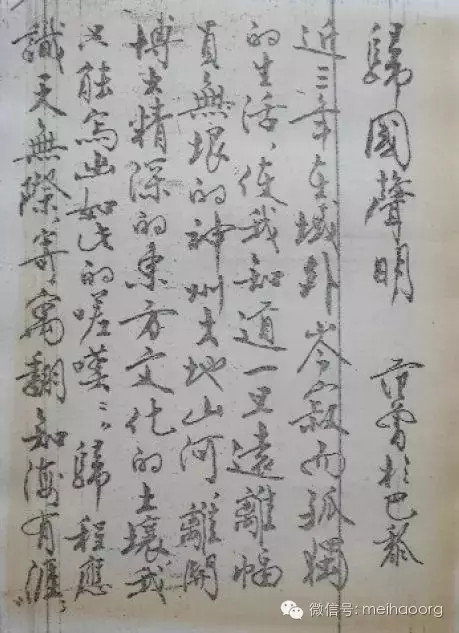 歸國聲明 范曾於巴黎
近三年在域外岑寂而孤獨
的生活、使我知道一旦遠離幅
員無垠的神州大地山河、離開
博大精深的東方文化的土壤我
只能寫出如此的嗟嘆：歸程應
識天無際、寄寓翻知海有涯。
微信号: meihaoorg